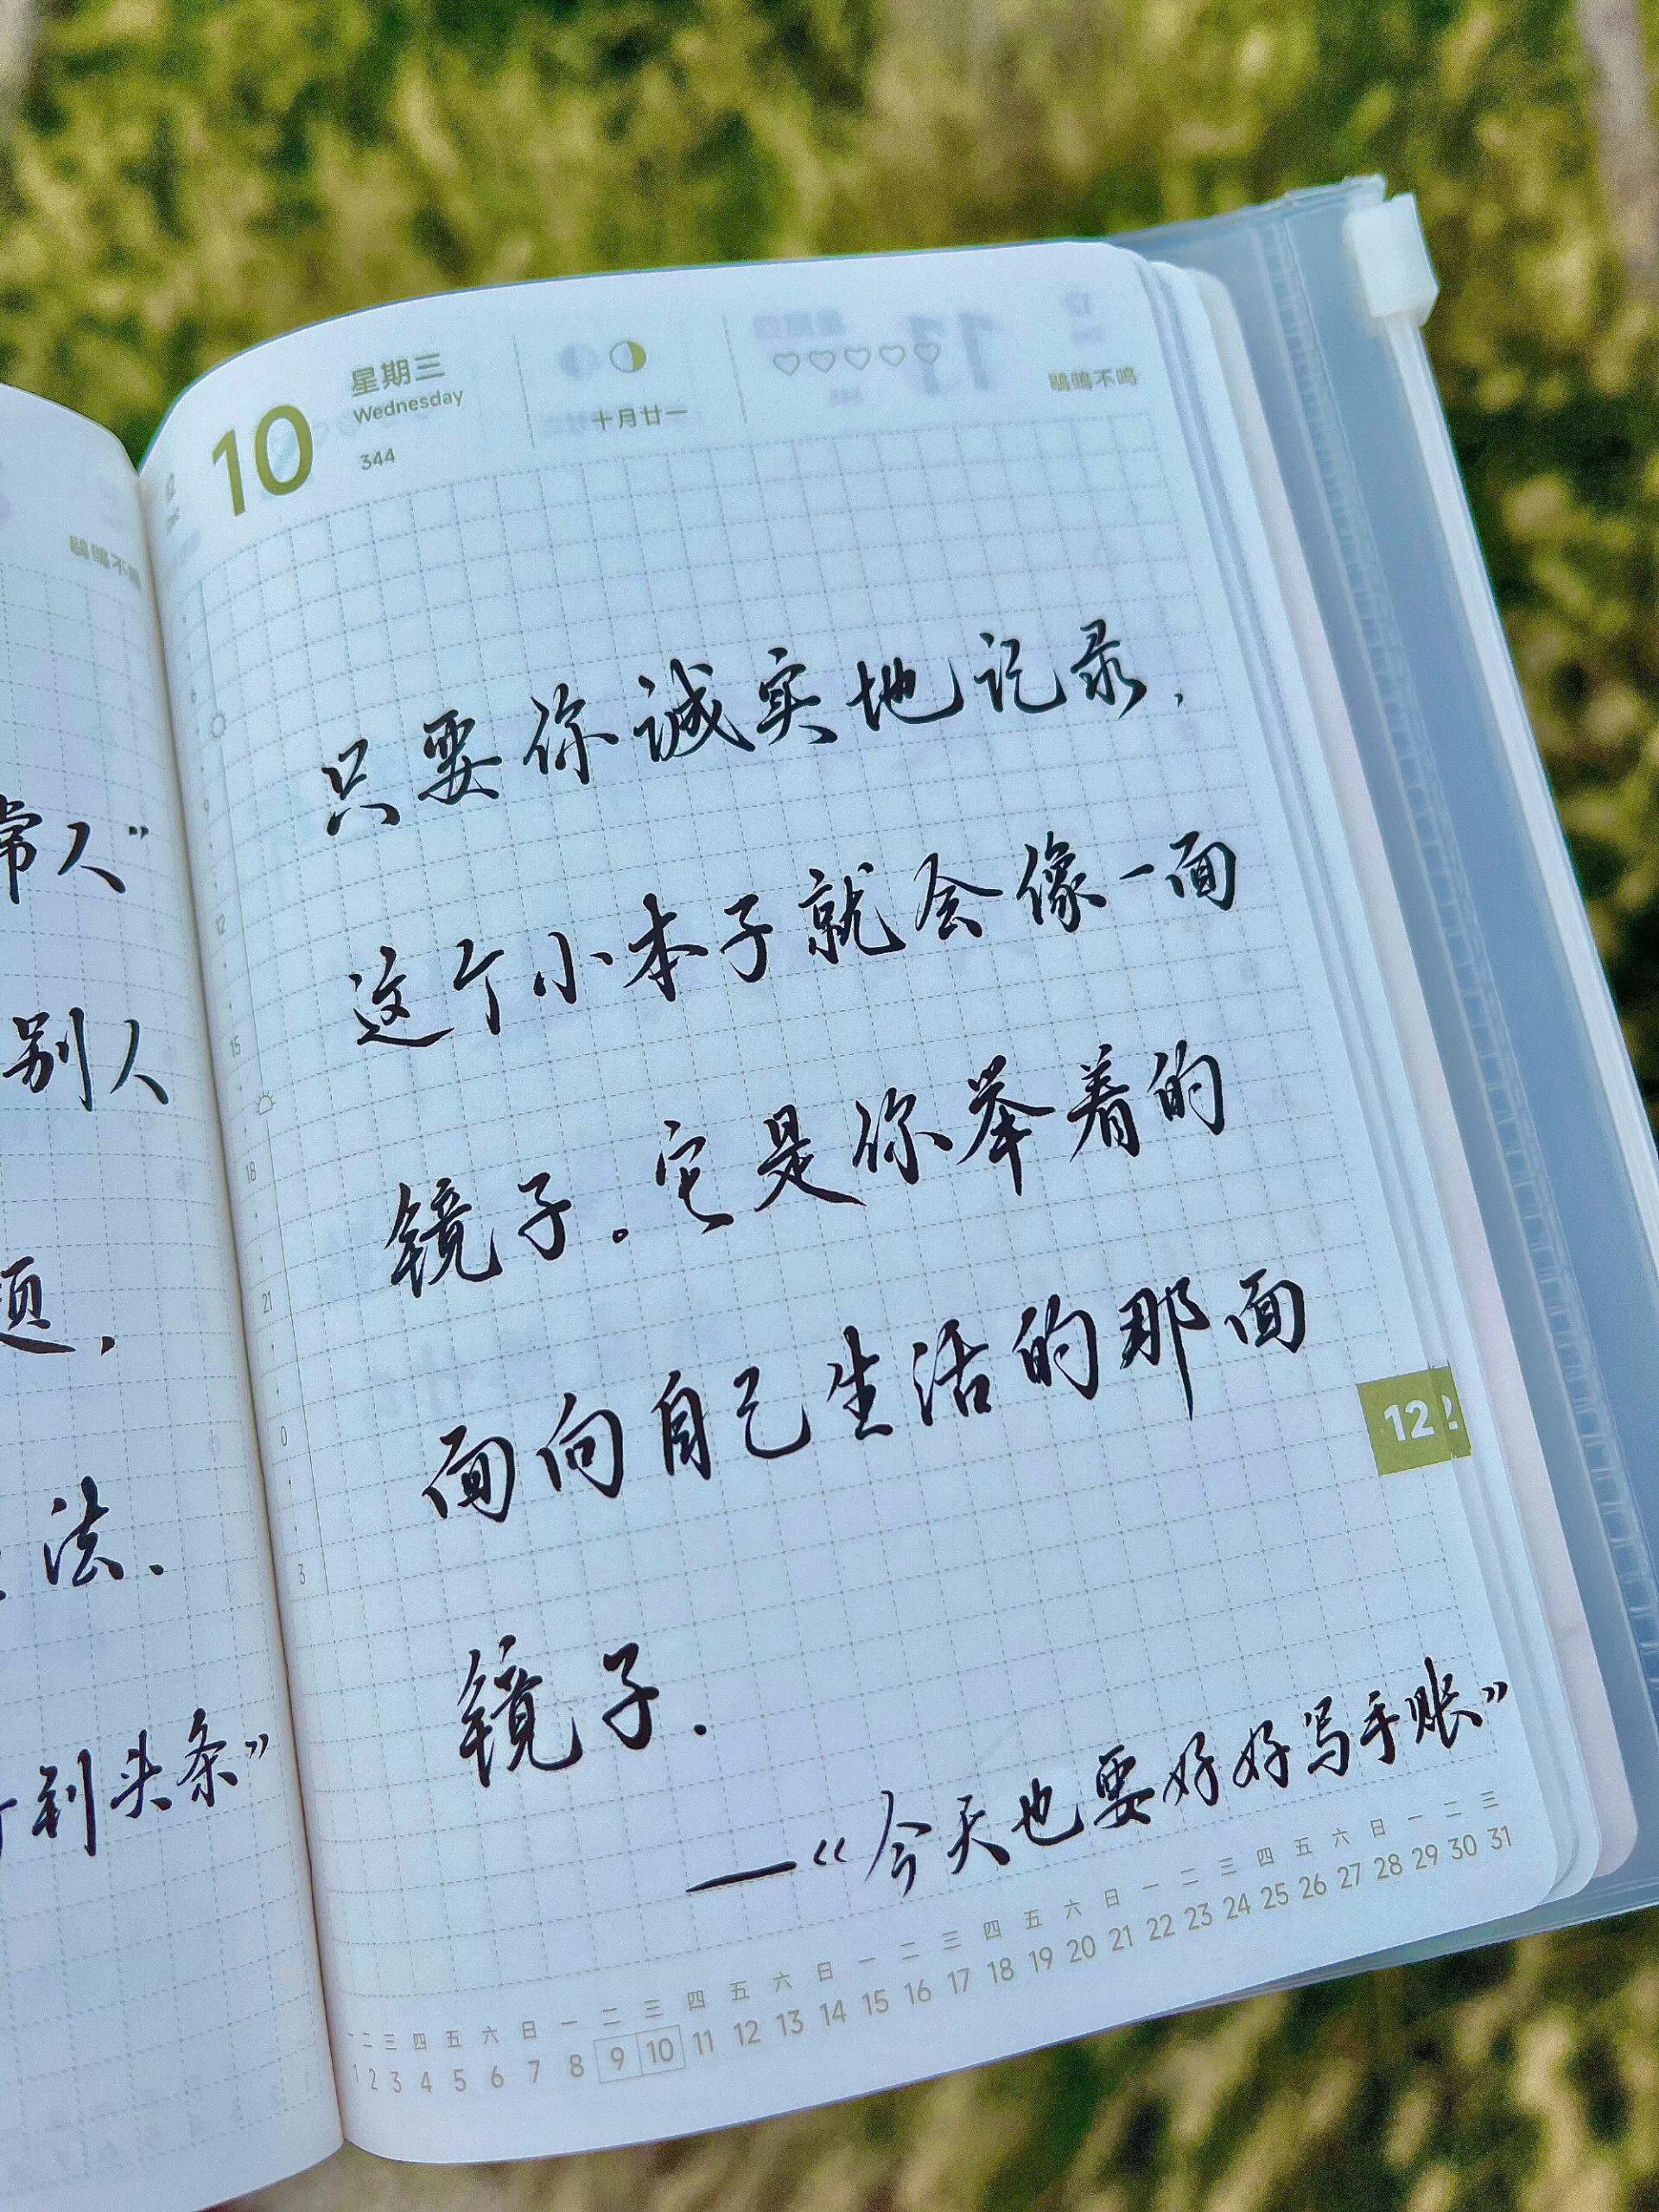 常人”
别人
题,
法、
到头条》
10
星期三
Wednesday
344
十月廿一
鹖鴠不鸣
只要你诚实地记录,
这个小本子就会像一面
镜子。它是你举着的
面向自己生活的那面
镜子.
——《今天也要好好写手账》
6
9
12
15
18
21
0
3
12
一 二 三 四 五 六 日 一 二 三 四 五 六 日 一 二 三 四 五 六 日 一 二 三 四 五 六 日 一 二 三
1 2 3 4 5 6 7 8 9 10 11 12 13 14 15 16 17 18 19 20 21 22 23 24 25 26 27 28 29 30 31